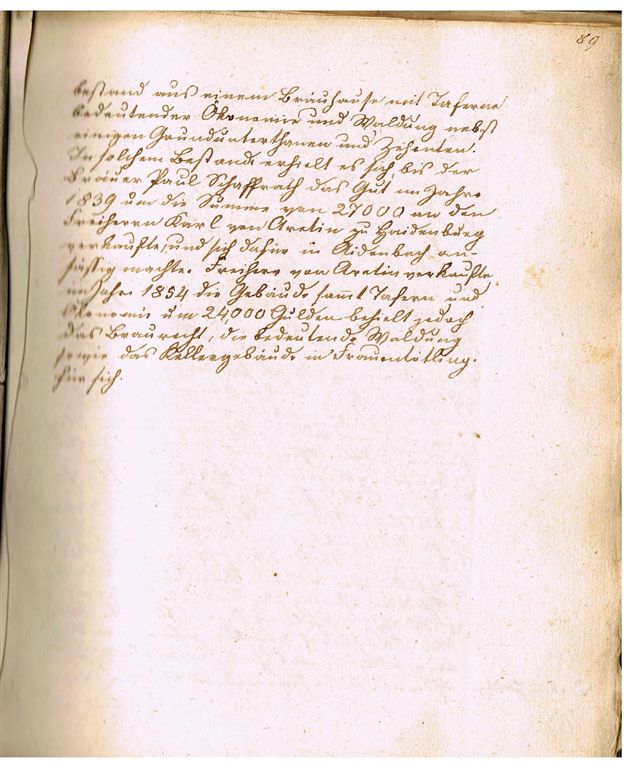 89
bestand aus einem Bräuhause mit Taferne
bedeutender Ökonomie und Waldung nebst
einigen Grundunterthanen und Zehenten.
In solchem Bestande erhielt es sich, bis der
Bräuer Paul Schaffrath das Gut im Jahre
1839 um die Summe von 27000 an den
Freiherrn Karl von Aretin zu Haidenburg
verkaufte, und sich dafür in Aidenbach an-
sässig machte. Freiherr von Aretin verkaufte
im Jahre 1854 die Gebäude sammt Tafern und
Ökonomie um 24000 Gulden behielt jedoch
das Braurecht, die bedeutende Waldung
sowie das Kellergebäude in Frauentötling.
für sich.